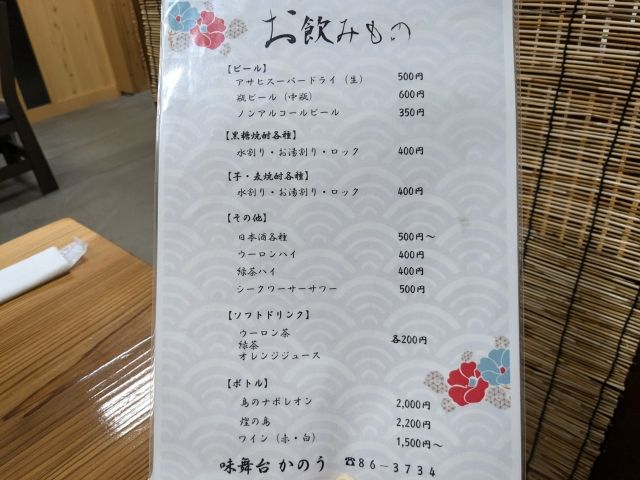 お飲みもの
【ビール】
アサヒスーパードライ（生） 500円
瓶ビール（中瓶） 600円
ノンアルコールビール 350円
【黒糖焼酎各種】
水割り・お湯割り・ロック 400円
【芋・麦焼酎各種】
水割り・お湯割り・ロック 400円
【その他】
日本酒各種 500円～
ウーロンハイ 400円
緑茶ハイ 400円
シークワーサーサワー 500円
【ソフトドリンク】
ウーロン茶
緑茶 各200円
オレンジジュース
【ボトル】
島のナポレオン 2,000円
煌の島 2,200円
ワイン（赤・白） 1,500円～
味舞台 かのう ☎86-3734